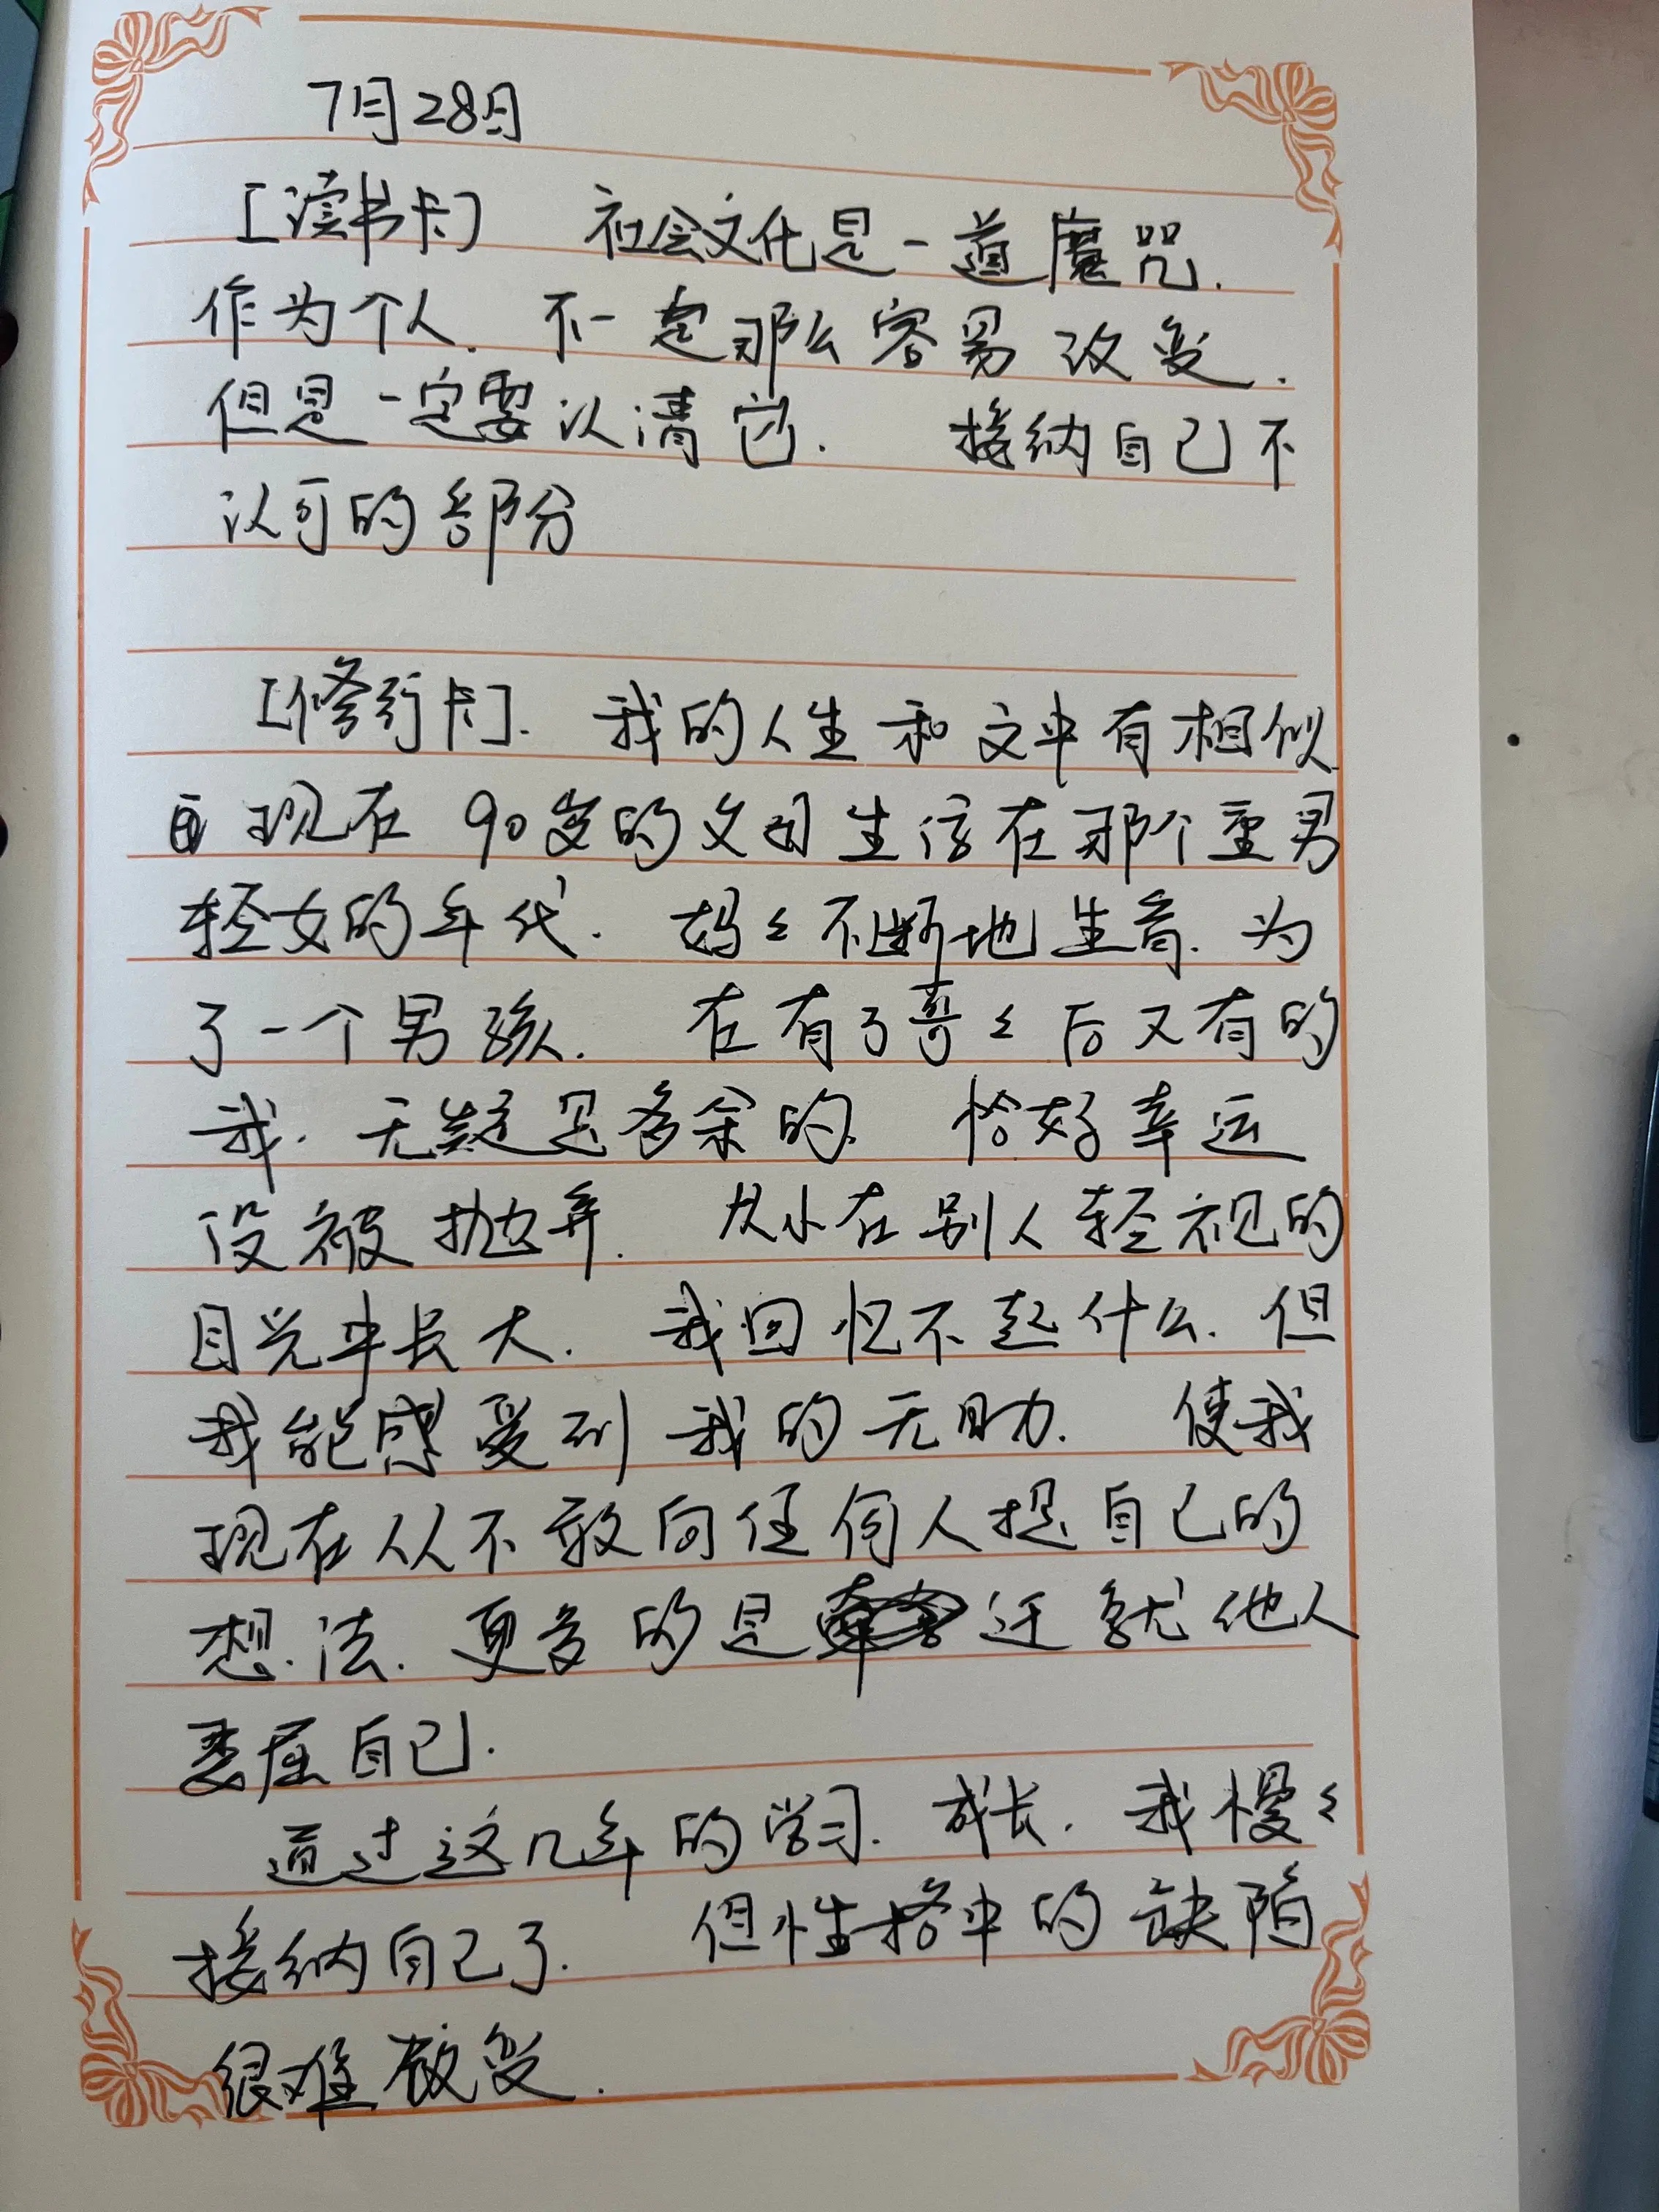 7月28日
[读书卡] 社会文化是一道魔咒.
作为个人. 不一定那么容易改变.
但是一定要认清它. 接纳自己不
认可的部分
[修行卡]. 我的人生和文中有相似
现在90岁的父母生活在那个重男
轻女的年代. 妈々不断地生育. 为
了一个男孩. 在有了哥々后又有的
我. 无疑是多余的. 恰好幸运
没被抛弃. 从小在别人轻视的
目光中长大. 我回忆不起什么. 但
我能感受到我的无助. 使我
现在从不敢向任何人提自己的
想法. 更多的是迁就他人
委屈自己.
通过这几年的学习. 成长. 我慢々
接纳自己了. 但性格中的缺陷
很难改变.